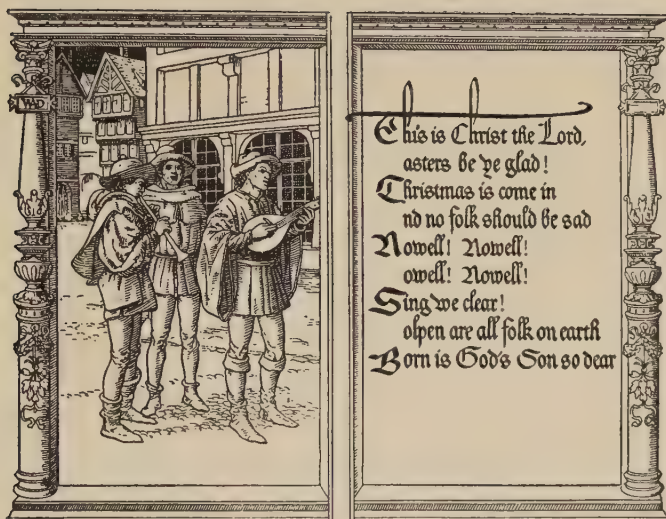 WAD
This is Christ the Lord,
asters be ye glad!
Christmas is come in
nd no folk should be sad
Nowell! Nowell!
owell! Nowell!
Sing we clear!
olpen are all folk on earth
Born is God's Son so dear